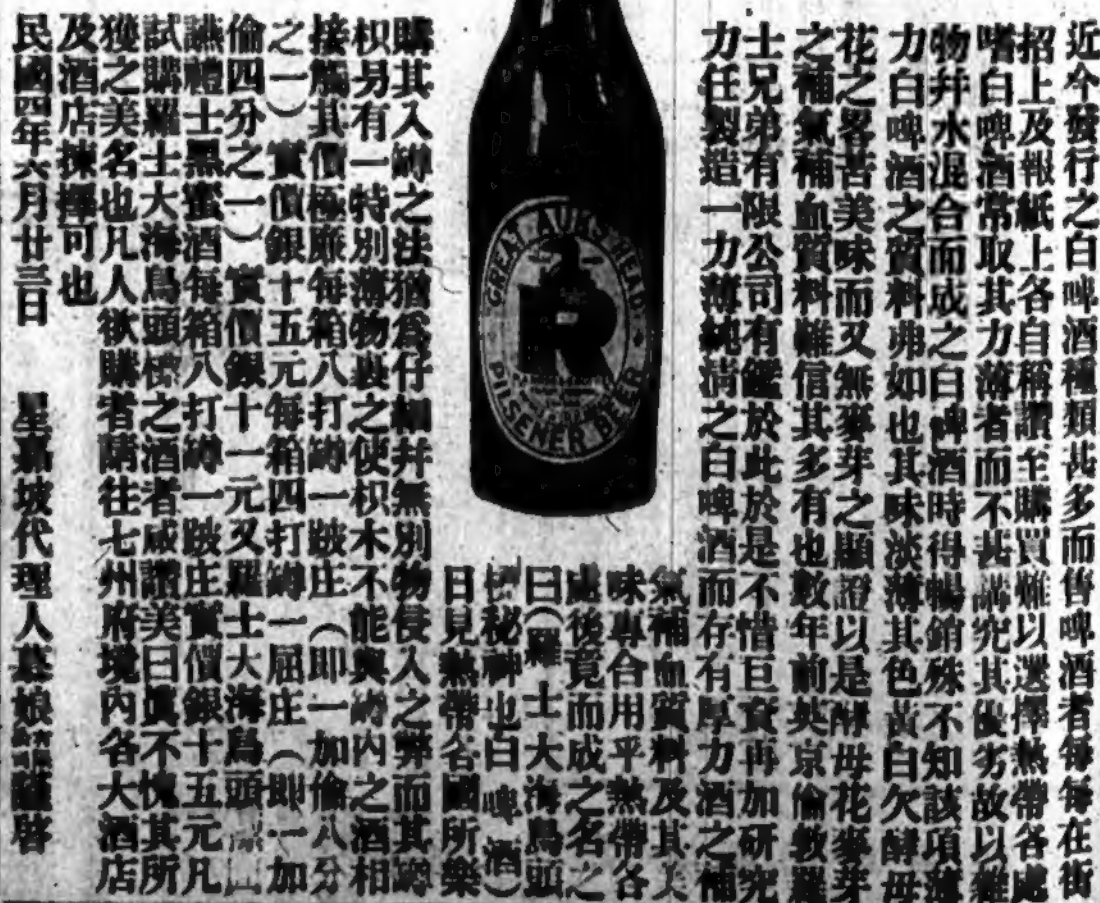 近今發行之白啤酒種類甚多而售啤酒者每每在街
招上及報紙上各自稱讚至購買難以選擇熱帶各處
嗜白啤酒常取其力薄者而不甚講究其優劣故以雜
物并水混合而成之白啤酒時得暢銷殊不知該項薄
力白啤酒之質料弗如也其味淡薄其色黃白欠酵母
花之畧苦美味而又無麥芽之顯證以是酵母花麥芽
之補氣補血質料難信其多有也數年前英京倫敦羅
士兄弟有限公司有鑑於此於是不惜巨資再加研究
力任製造一力薄純清之白啤酒而存有厚力酒之補
氣補血質料及其美
味專合用平熱帶各
處後竟而成之名之
曰(羅士大海鳥頭
秘碑也白啤酒)
日見熱帶各國所樂
GREAT AUK'S HEAD
R
PILSENER BEER
購其入罇之法猶為仔細并無別物侵入之弊而其罇
枳另有一特別薄物裹之使枳木不能與罇內之酒相
接觸其價極廉每箱八打罇一跛庄(即一加倫八分
之一)實價銀十五元每箱四打罇一屈庄(即一加
倫四分之一)實價銀十一元又羅士大海鳥頭
讌禮士黑蜜酒每箱八打罇一跛庄實價銀十五元凡
試購羅士大海鳥頭標之酒者咸讚美曰真不愧其所
獲之美名也凡人欲購者請往七州府境內各大酒店
及酒店揀擇可也
民國四年六月廿三日 星嘉坡代理人慕娘 啓